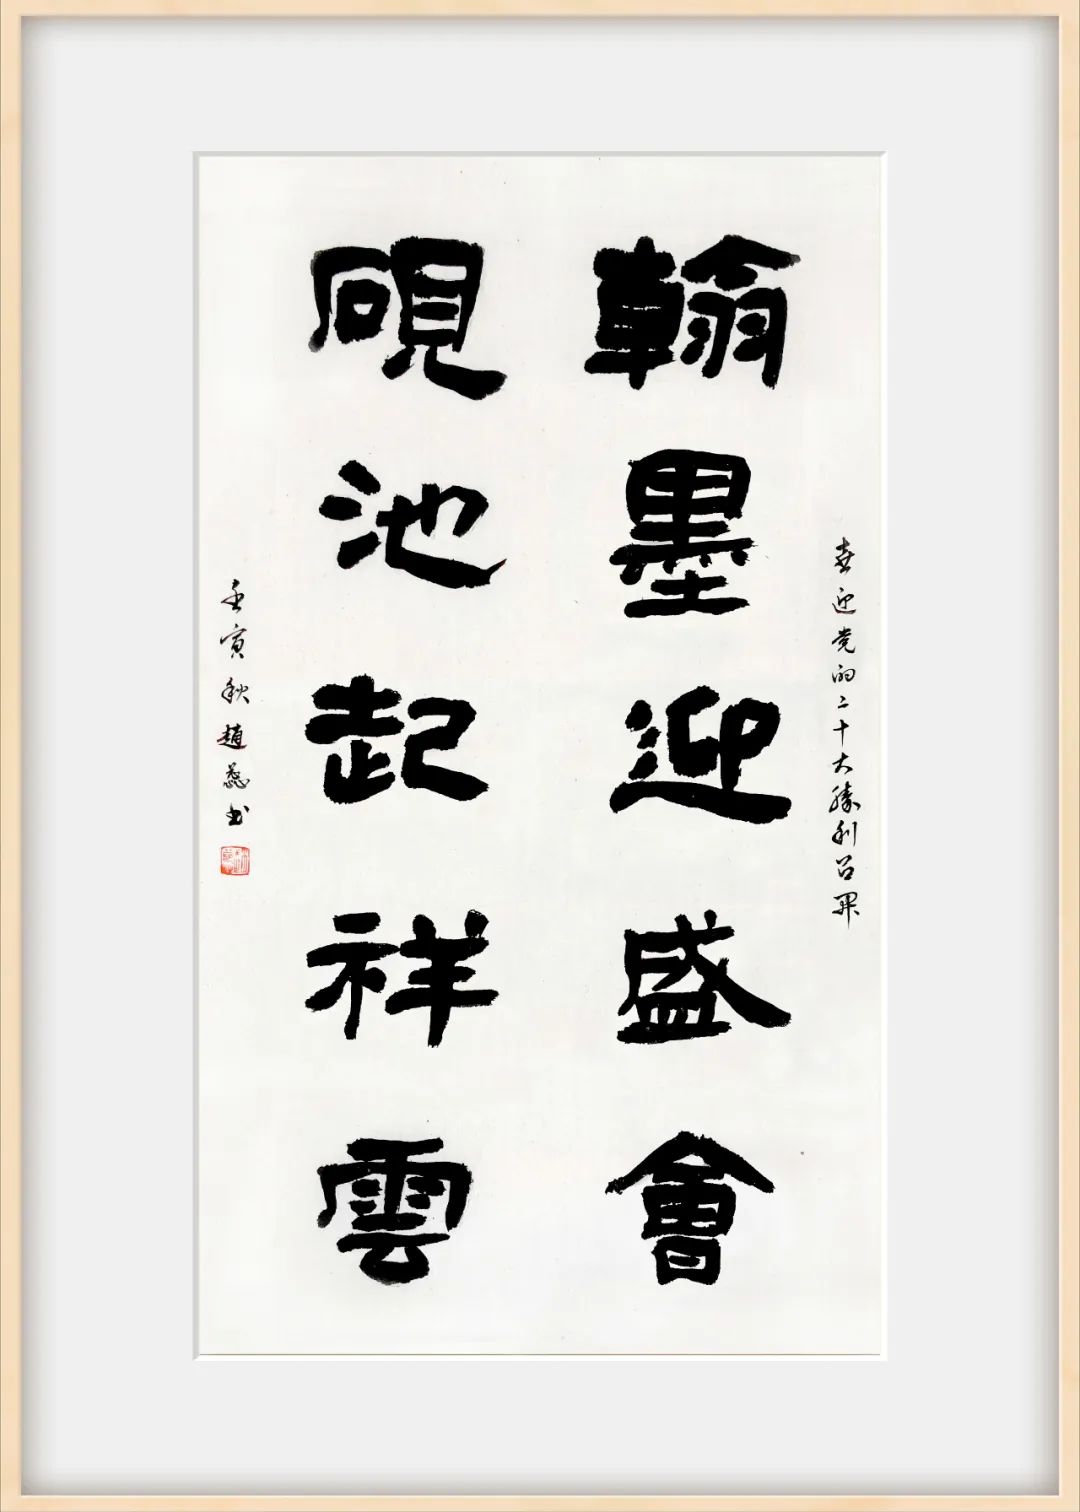 喜迎党的二十大勝利召开
翰墨迎盛會
硯池起祥雲
壬寅秋趙蕊书